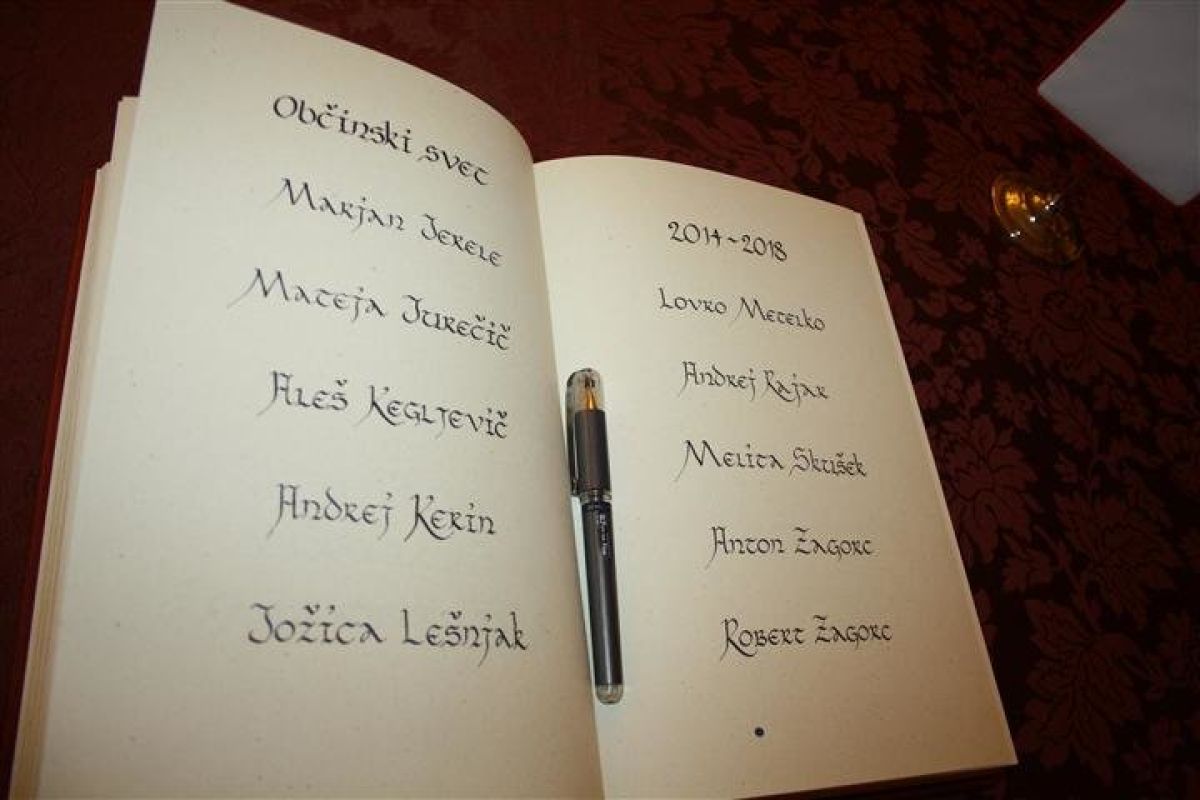 Občinski svet
Marjan Jerele
Mateja Jurečič
Aleš Kegljevič
Andrej Kerin
Jožica Lešnjak
2014-2018
Lovro Metelko
Andrej Rajar
Melita Skušek
Anton Žagorc
Robert Žagorc